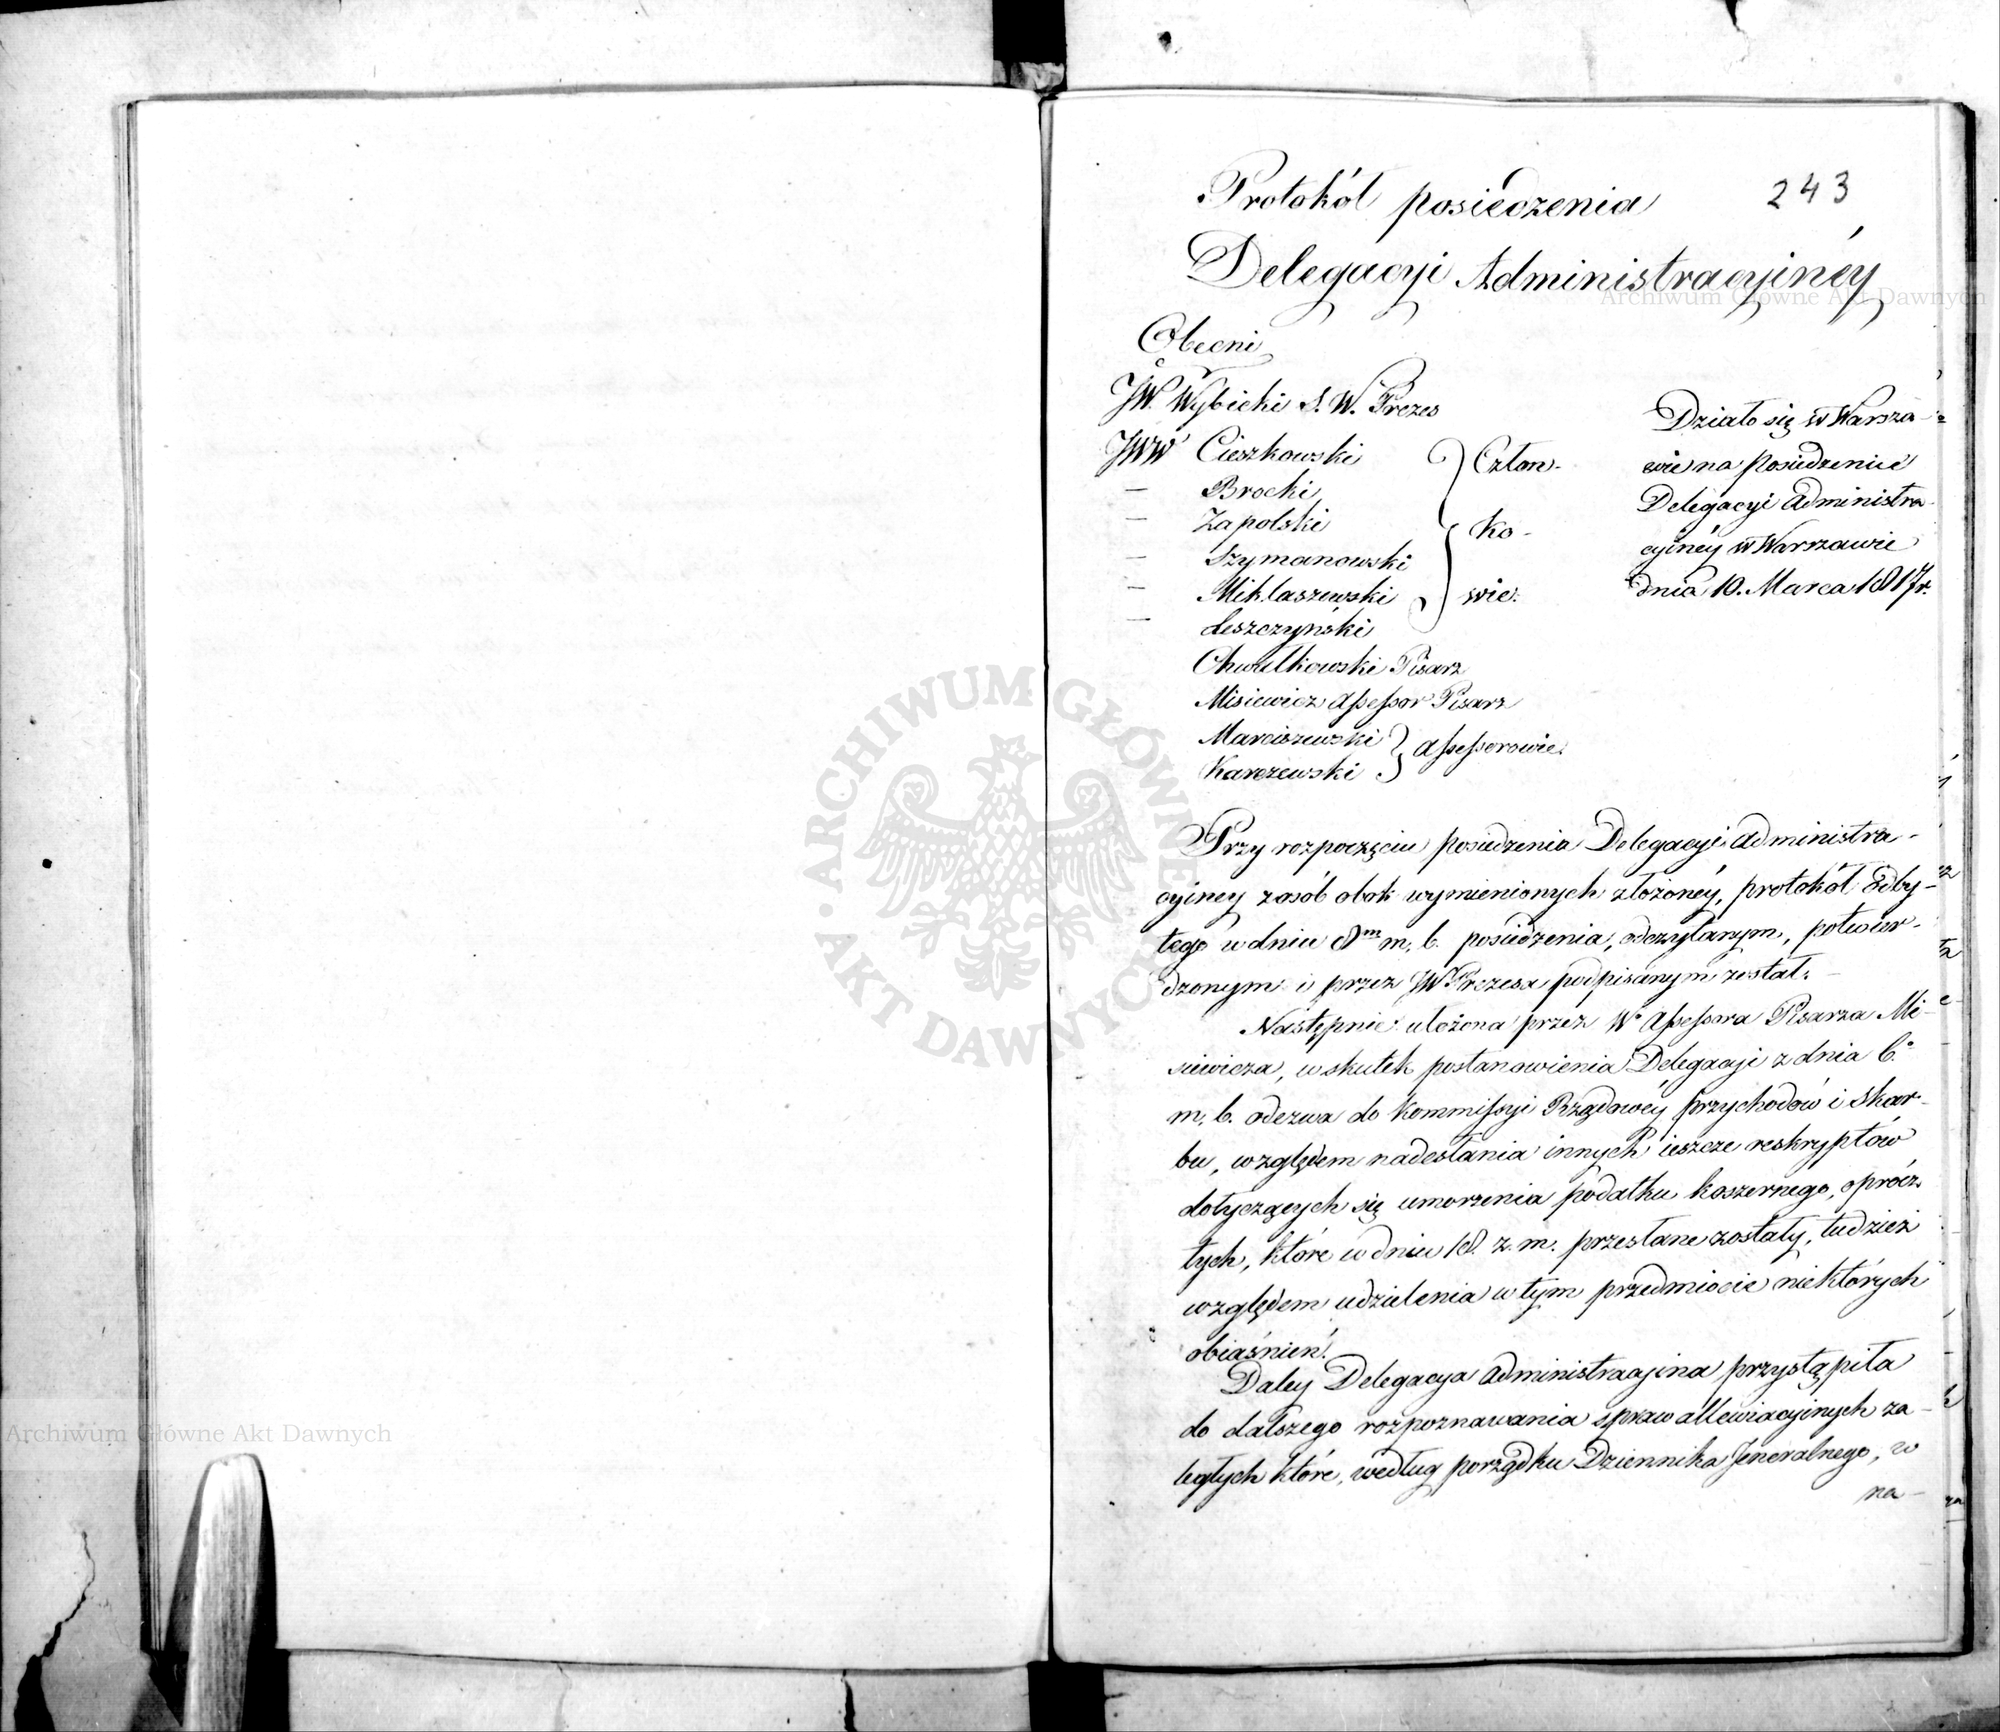 243
Protokół posiedzenia
Delegacyi Administracyinéy
Obecni
JW. Wybicki S. W. Prezes
JWW Cieszkowski
— Brocki
— Zapolski
— Szymanowski
— Miklaszewski
— Leszczyński
Człon-
ko-
wie.
Chwalkowski Pisarz
Misiewicz Assessor Pisarz
Marciszewski
Karczewski
Assessorowie.
Działo się w Warsza-
wie na posiedzenie
Delegacyi Administra-
cyinéy w Warszawie
dnia 10. Marca 1817 r.
Przy rozpoczęciu posiedzenia Delegacyi Administra-
cyiney z osób obok wymienionych złożonéy, protokół odby-
tego w dniu 8m m. b. posiedzenia, odczytanym, potwier-
dzonym i przez JW Prezesa podpisanym został.
Następnie ułożona przez W Assessora Pisarza Mi-
siewicza, w skutek postanowienia Delegacyi z dnia 6.o
m. b. odezwa do Kommissyi Rządowéy przychodów i skar-
bu, względem nadesłania innych ieszcze reskryptów
dotyczących się umorzenia podatku koszernego, oprócz
tych, które w dniu 18. z. m. przesłane zostały, tudzież
względem udzielenia w tym przedmiocie niektórych
obiaśnień.
Daley Delegacya Administracyina przystąpiła
do dalszego rozpoznawania spraw allewiacyinych za-
ległych które, według porządku Dziennika Jeneralnego, w
na-
Archiwum Główne Akt Dawnych
Archiwum Główne Akt Dawnych
ARCHIWUM GŁÓWNE • AKT DAWNYCH •